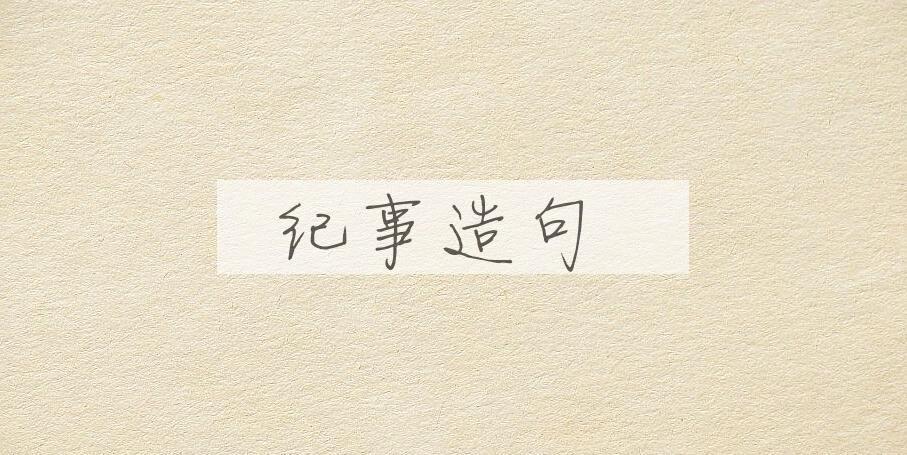 纪事造句